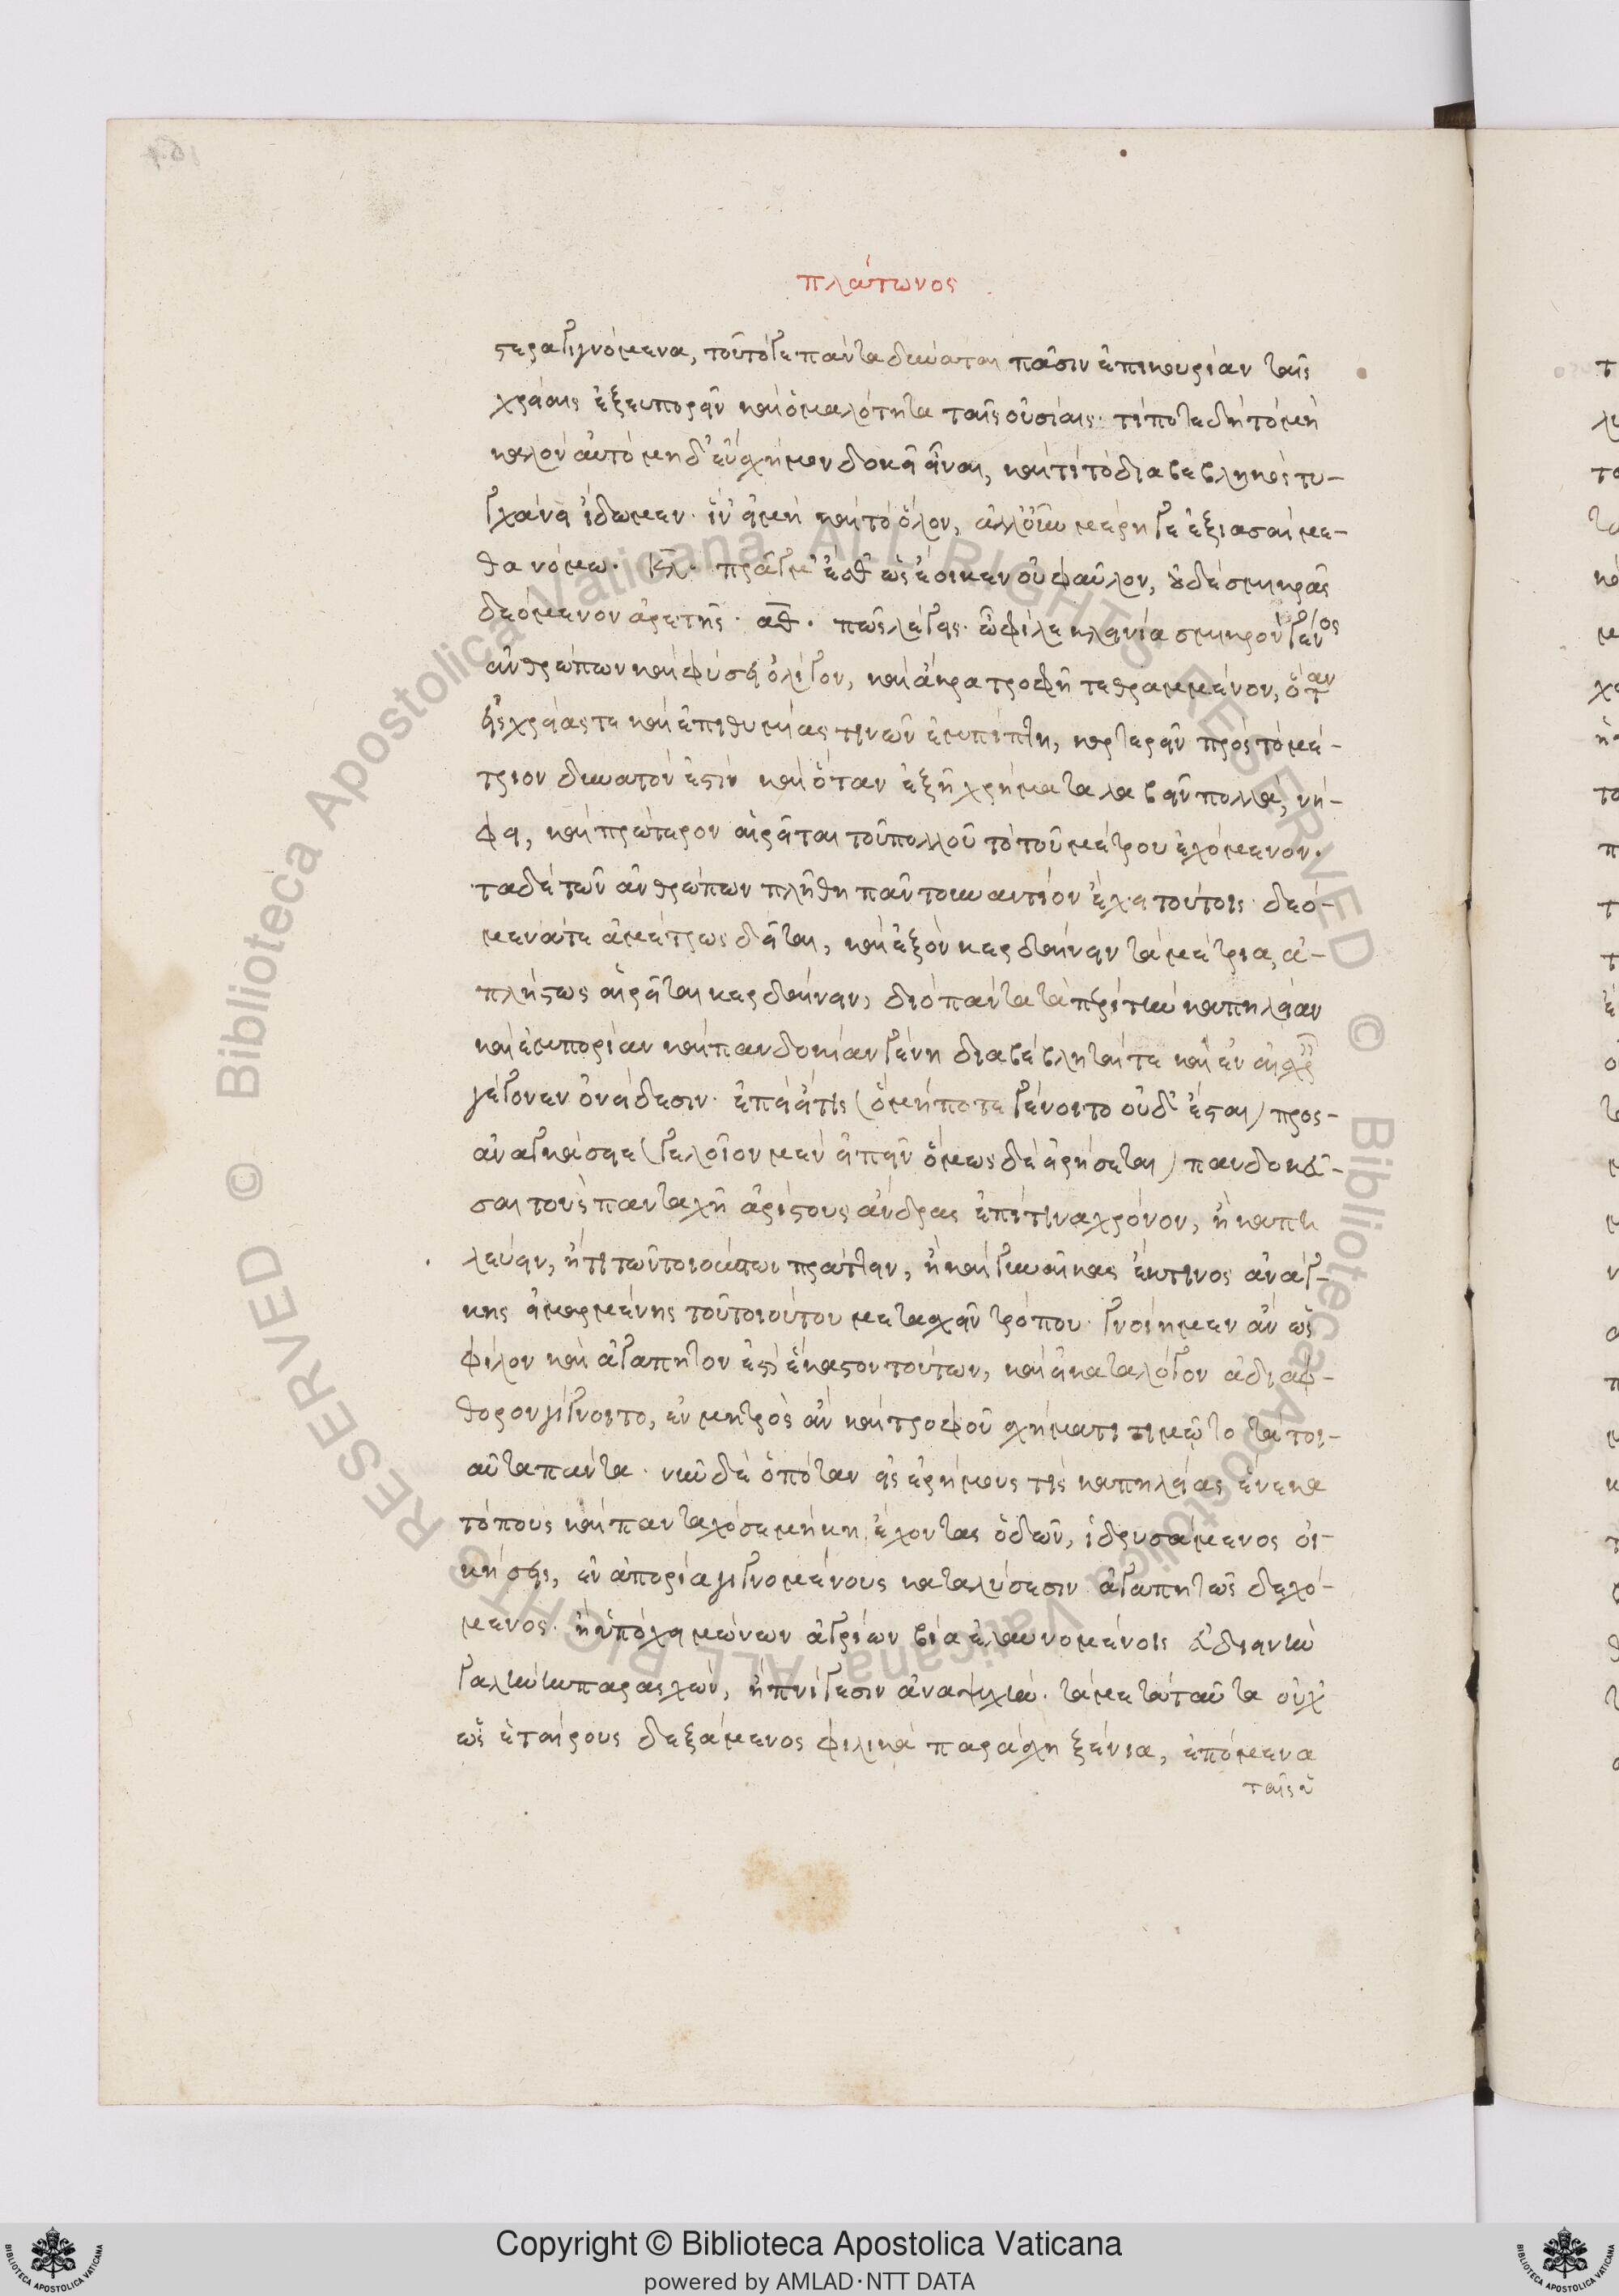 πλάτωνος
στερα γιγνόμενα, τοῦτό γε πάντα δύναται πᾶσιν ἐπικουρίαν ταῖς
χρείαις ἐξευπορεῖν καὶ ὁμαλότητα ταῖς οὐσίαις· τί ποτε δὴ τὸ μὴ
καλὸν αὐτὸ μηδ' εὔσχημον δοκεῖ εἶναι, καὶ τί τὸ διαβεβληκὸς τυ-
γχάνει ἴδωμεν· ἵν' εἰ μὴ καὶ τὸ ὅλον, ἀλλ' οὖν μέρη γε ἐξιασαίμε-
θα νόμω. Κλ. πρᾶγμ' ἔσθ' ὡς ἔοικεν οὐ φαῦλον, οὐδὲ σμικρᾶς
δεόμενον ἀρετῆς· αθ. πῶς λέγεις· ὦ φίλε κλεινία σμικρὸν γένος
ἀνθρώπων καὶ φύσει ὀλίγον, καὶ ἄκρα τροφῆ τεθραμμένον, ὅταν
εἰς χρείας τε καὶ ἐπιθυμίας τινῶν ἐμπίπτη, καρτερεῖν πρὸς τὸ μέ-
τριον δυνατόν ἐστιν καὶ ὅταν ἐξῆ χρήματα λαβεῖν πολλά, νή-
φει, καὶ πρότερον αἱρεῖται τοῦ πολλοῦ τὸ τοῦ μέτρου ἐχόμενον.
τὰ δὲ τῶν ἀνθρώπων πλήθη πᾶν τοὐναντίον ἔχει τούτοις· δεό-
μενά τε ἀμέτρως δεῖται, καὶ ἐξὸν κερδαίνειν τὰ μέτρια, ἀ-
πλήστως αἱρεῖται κερδαίνειν, διὸ πάντα τὰ περὶ τὴν καπηλείαν
καὶ ἐμπορίαν καὶ πανδοκίαν γένη διαβέβληταί τε καὶ ἐν αἰσχροῖς
γέγονεν ὀνείδεσιν· ἐπεὶ εἴ τις (ὃ μή ποτε γένοιτο οὐδ' ἔσται) προς-
αναγκάσειε (γελοῖον μὲν εἰπεῖν ὅμως δὲ εἰρήσεται) πανδοκεῦ-
σαι τοὺς πανταχῆ ἀρίστους ἄνδρας ἐπί τινα χρόνον, ἢ καπη
λεύειν, ἤ τι τῶν τοιούτων πράττειν, ἢ καὶ γυναῖκας ἔκ τινος ἀνάγ-
κης εἱμαρμένης τοῦ τοιούτου μετασχεῖν τρόπου· γνοίημεν ἂν ὡς
φίλον καὶ ἀγαπητόν ἐστὶ ἕκαστον τούτων, καὶ εἰ κατα λόγον ἀδιάφ-
θορον γίγνοιτο, ἐν μητρὸς ἂν καὶ τροφοῦ σχήματι τιμῷτο τὰ τοι-
αῦτα πάντα· νῦν δὲ ὁπόταν εἰς ἐρήμους τὶς καπηλείας ἕνεκα
τόπους καὶ πανταχόσε μήκη ἔχοντας ὁδῶν, ἱδρυσάμενος οἰ-
κήσεις, ἐν ἀπορία γιγνομένους καταλύσεσιν ἀγαπηταῖς δεχό-
μενος· ἢ ὑπὸ χειμώνων ἀγρίων βία ἐλαυνομένοις εὐδιεινὴν
γαλήνην παρασχών, ἢ πνίγεσιν ἀναψυχήν· τὰ μετὰ ταῦτα οὐχ'
ὡς ἑταίρους δεξάμενος φιλικὰ παράσχη ξένια, ἑπόμενα
ταῖς ὑ